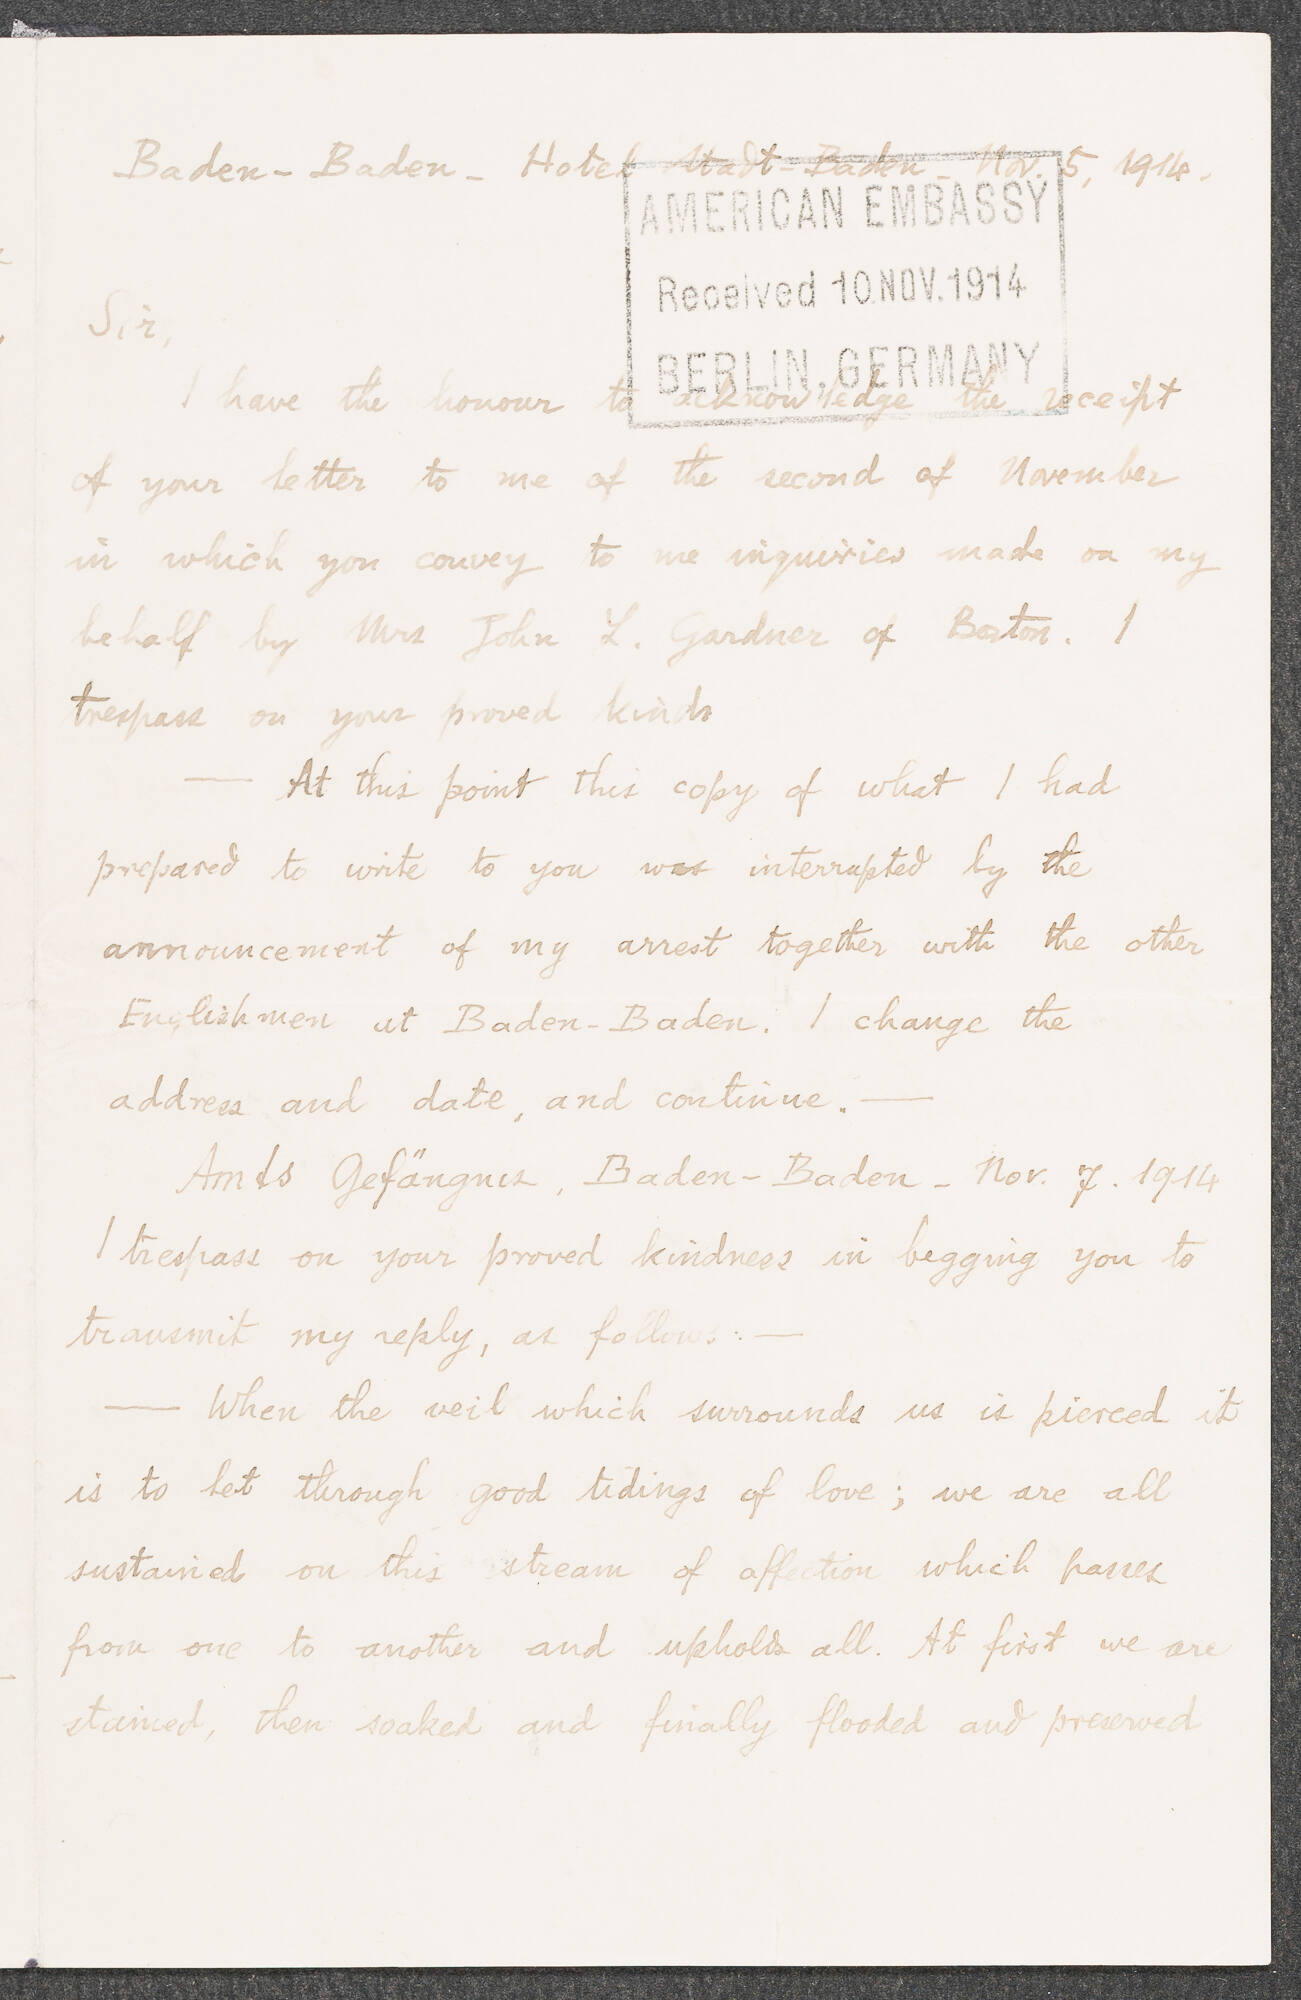 Baden-Baden - Hotel Stadt-Baden - Nov. 5, 1914.
AMERICAN EMBASSY
Received 10.NOV.1914
BERLIN, GERMANY
Sir,
I have the honour to acknowledge the receipt
of your letter to me of the second of November
in which you convey to me inquiries made on my
behalf by Mrs John L. Gardner of Boston. I
trespass on your proved kinds
— At this point this copy of what I had
prepared to write to you was interrupted by the
announcement of my arrest together with the other
Englishmen at Baden-Baden. I change the
address and date, and continue. —
Amts Gefängnis, Baden-Baden - Nov. 7. 1914
I trespass on your proved kindness in begging you to
transmit my reply, as follows: —
— When the veil which surrounds us is pierced it
is to let through good tidings of love; we are all
sustained on this stream of affection which passes
from one to another and upholds all. At first we are
stained, then soaked and finally flooded and preserved